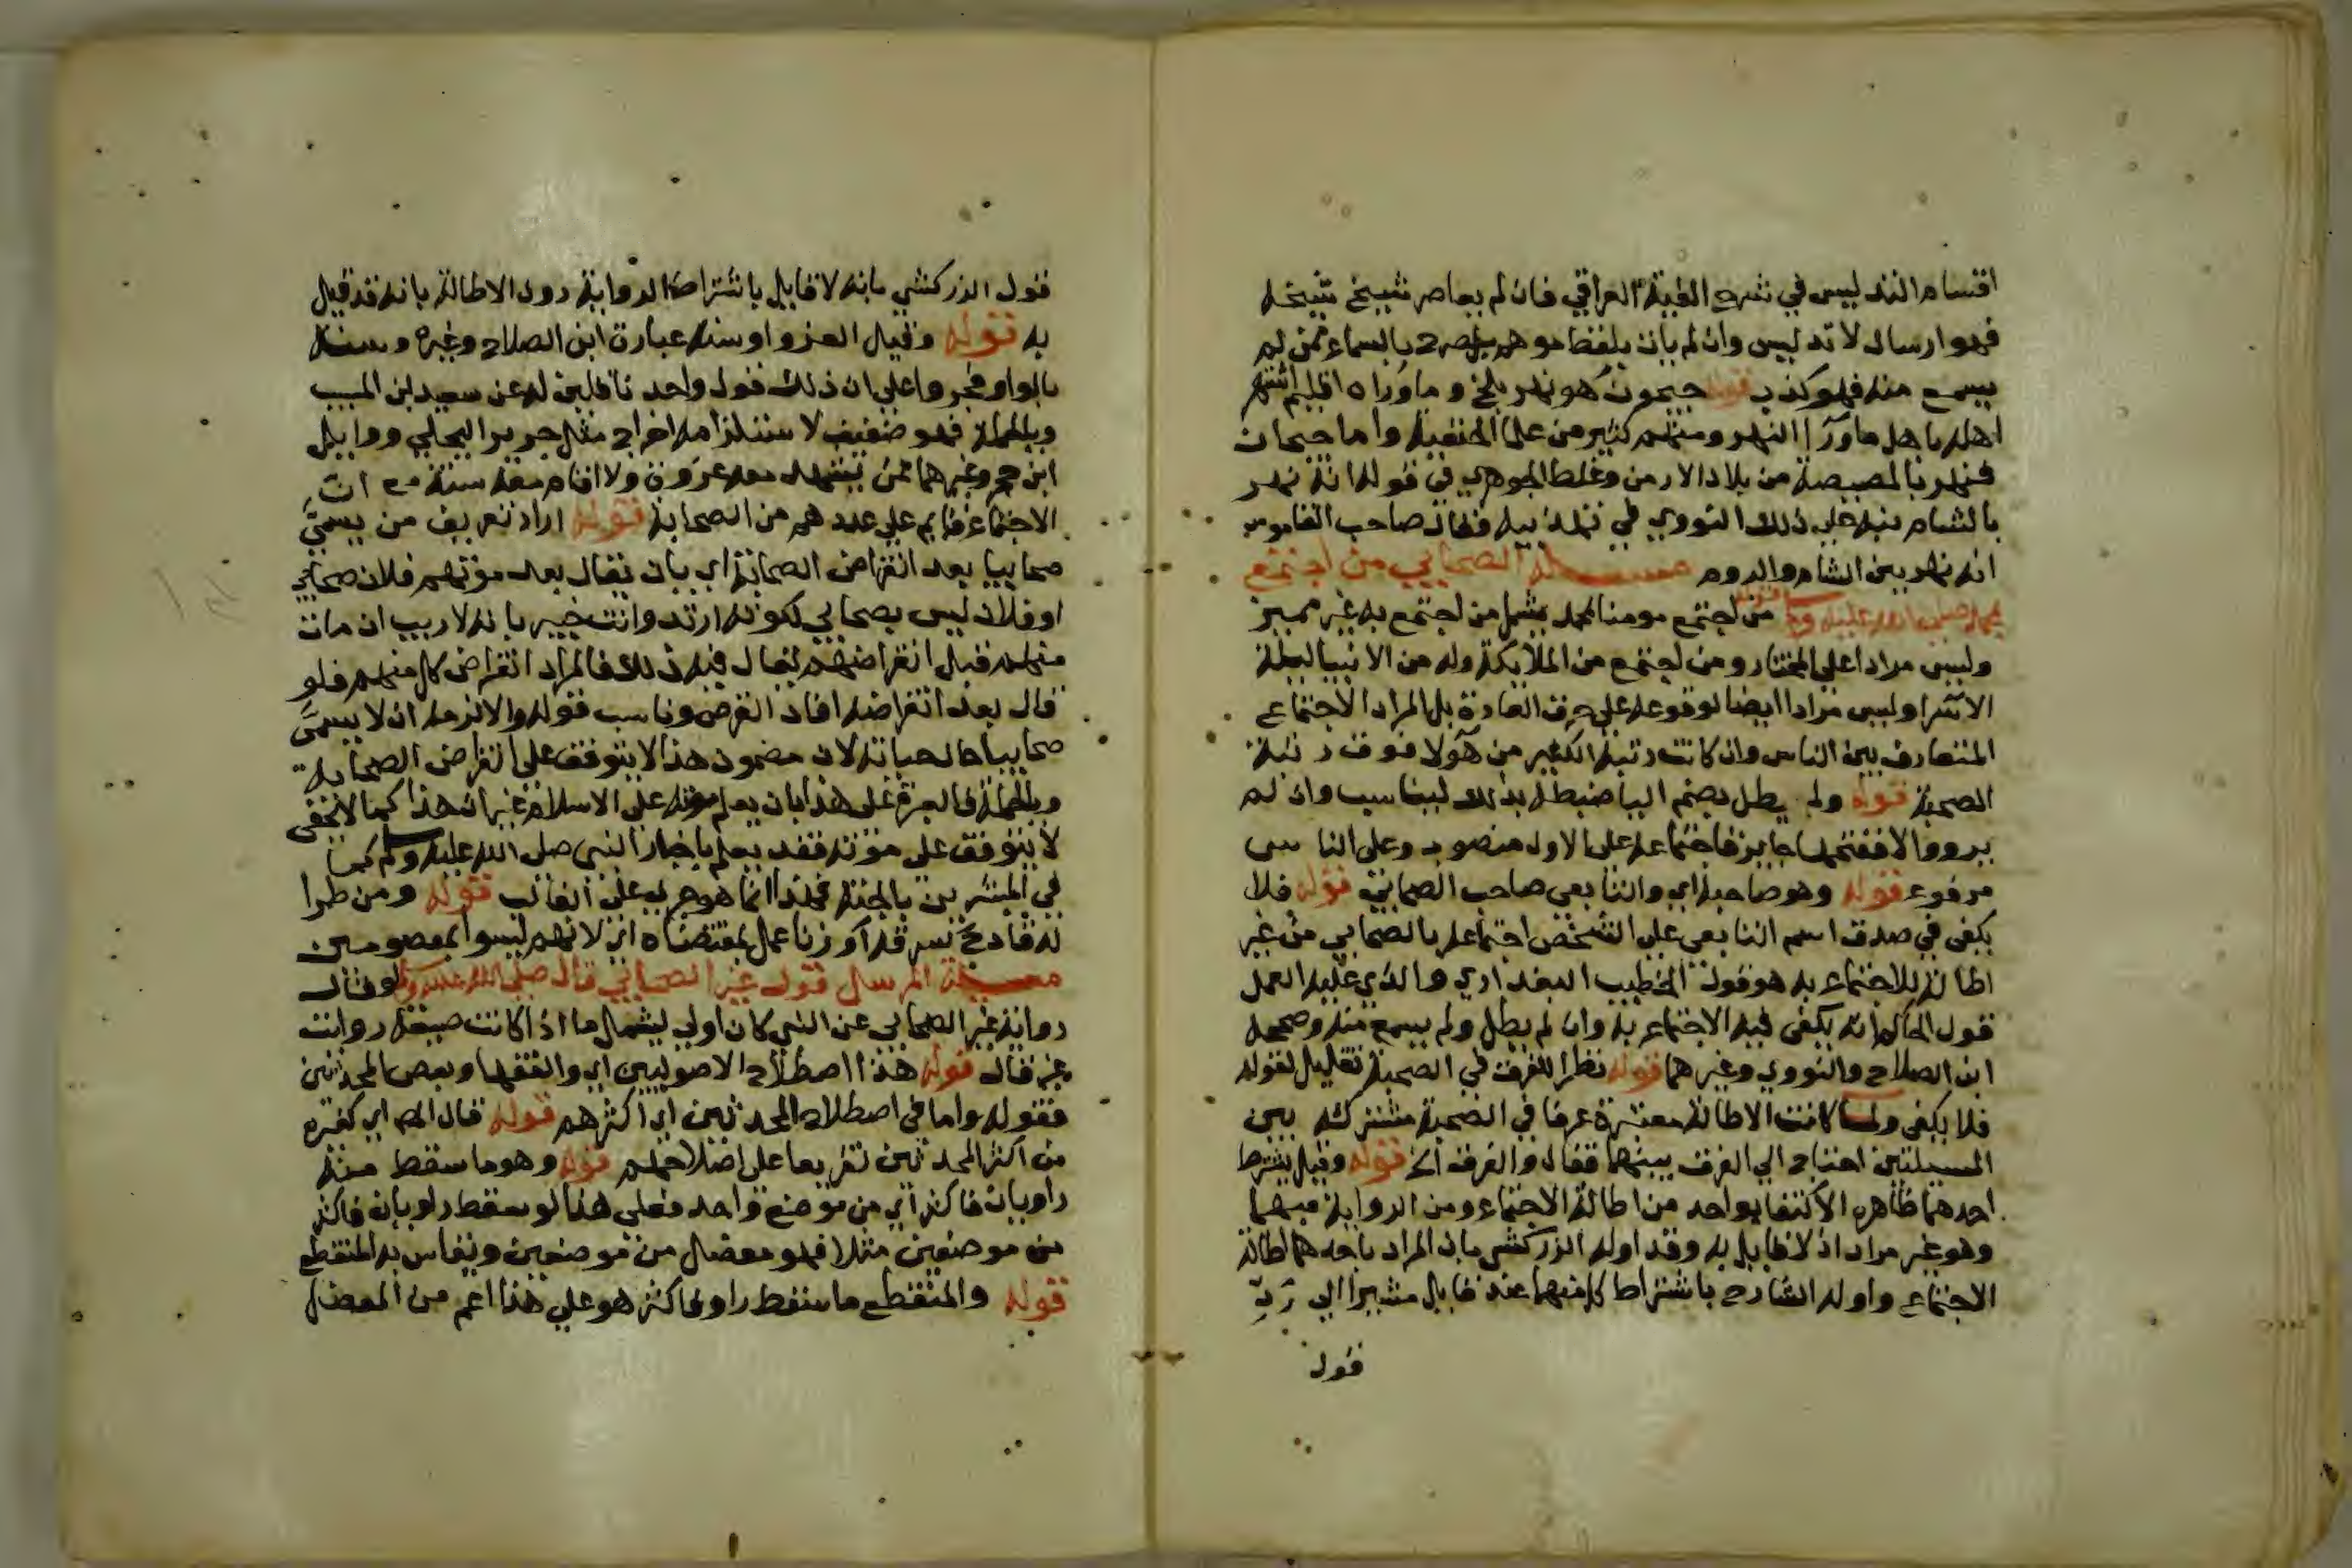 اقسام التدليس في شرح الفية العراقي فان لم يعاصر شيخ شيخه
فهو ارسال لا تدليس وان لم يات بلفظ موهم بل صرح بالسماع ممن لم
يسمع منه فهو كذب قوله جيحون هو نهر بلخ وما وراه اقليم اشتهر
اهله باهل ما ورآ النهر ومنهم كثير من علما الحنفية واما جيحان
فنهر بالمصيصة من بلاد الارمن وغلط الجوهري في قوله انه نهر
بالشام نبه على ذلك النووي في تهذيبه وقال صاحب القاموس
انه نهر بين الشام والروم مسـئلة الصحابي من اجتمع
بمحمد صلى الله عليه وسلم قوله من اجتمع مومنا بمحمد يشمل من اجتمع به غير مميز
وليس مرادا على المختار ومن اجتمع من الملايكة وله من الانبيا ليلة
الاسرا وليس مرادا ايضا لوقوعه على خرق العادة بل المراد الاجتماع
المتعارف بين الناس وان كانت رتبة الكثير من هولا فوق رتبة
الصحبة قوله ولم يطل بضم اليا ضبطه بذلك ليناسب وان لم
يرو والا ففتحها جايز فاجتماعه على الاول منصوب وعلى الثاني
مرفوع قوله وهو صاحبه اي والتابعي صاحب الصحابي قوله فلا
يكفي في صدق اسم التابعي على الشخص اجتماعه بالصحابي من غير
اطالة للاجتماع به هو قول الخطيب البغدادي والذي عليه العمل
قول الحاكم انه يكفي فيه الاجتماع به وان لم يطل ولم يسمع منه وصححه
ابن الصلاح والنووي وغيرهما قوله نظرا للعرف في الصحبة تعليل لقوله
فلا يكفي ولما كانت الاطالة معتبرة عرفا في الصحبة مشتركة بين
المسيلتين احتاج الي الفرق بينهما فقال والفرق الخ قوله وقيل يشترط
احدهما ظاهره الاكتفا بواحد من اطالة الاجتماع ومن الرواية مبهما
وهو غير مراد اذ لا قايل به وقد اوله الزركشي بان المراد باحدهما اطالة
الاجتماع واوله الشارح باشتراط كل منهما عند قايل مشيرا الي رد
قول
قول الزركشي بانه لا قايل باشتراط الرواية دون الاطالة بانه قد قيل
به قوله وقيل الغزو او سنة عبارة ابن الصلاح وغيره وسنة
بالواو واعلى ان ذلك قول واحد ناقلين له عن سعيد بن المسيب
وبالجملة فهو ضعيف لاستلزامه اخراج مثل جرير البجلي ووايل
ابن حجر وغيرهما ممن يشهد معه غزوة ولا اقام معه سنة مع ان
الاجتماع قايم على عدهم من الصحابة قوله اراد تعريف من يسمى
صحابيا بعد انقراض الصحابة اي بان يقال بعد موتهم فلان صحابي
او فلان ليس بصحابي لكونه ارتد وانت خبير بانه لا ريب ان مات
منهم قبل انقراضهم يقال فيه ذلك فالمراد انقراض كل منهم فلو
قال بعد انقراضه افاد الغرض وناسب قوله والا لزمه ان لا يسمى
صحابيا حال حياته لان مضمون هذا لا يتوقف على انقراض الصحابة
وبالجملة فالعبرة على هذا بان يعلم موته على الاسلام غير ان هذا كما لا يخفى
لا يتوقف على موته فقد يعلم باخبار النبي صلى الله عليه وسلم كما
في المبشرين بالجنة فهذا انما هو جري على الغالب قوله ومن طرا
له قادح كسرقة او زنا عمل بمقتضاه اي لانهم ليسوا بمعصومين
مسئلة المرسل قول غير الصحابي قال صلى الله عليه وسلم لو قال
رواية غير الصحابي عن النبي كان اولي ليشمل ما اذا كانت صيغة روايته
غير قال قوله هذا اصطلاح الاصوليين اي والفقها وبعض المحدثين
فقوله واما في اصطلاح المحدثين اي اكثرهم قوله قال المص اي كغيره
من اكثر المحدثين تفريعا على اصطلاحهم قوله وهو ما سقط منه
راويان فاكثر اي من موضع واحد فعلى هذا لو سقط راويان فاكثر
من موضعين مثلا فهو معضل من موضعين ويقاس به المنقطع
قوله والمنقطع ما سقط راو فاكثر هو على هذا اعم من المعضل